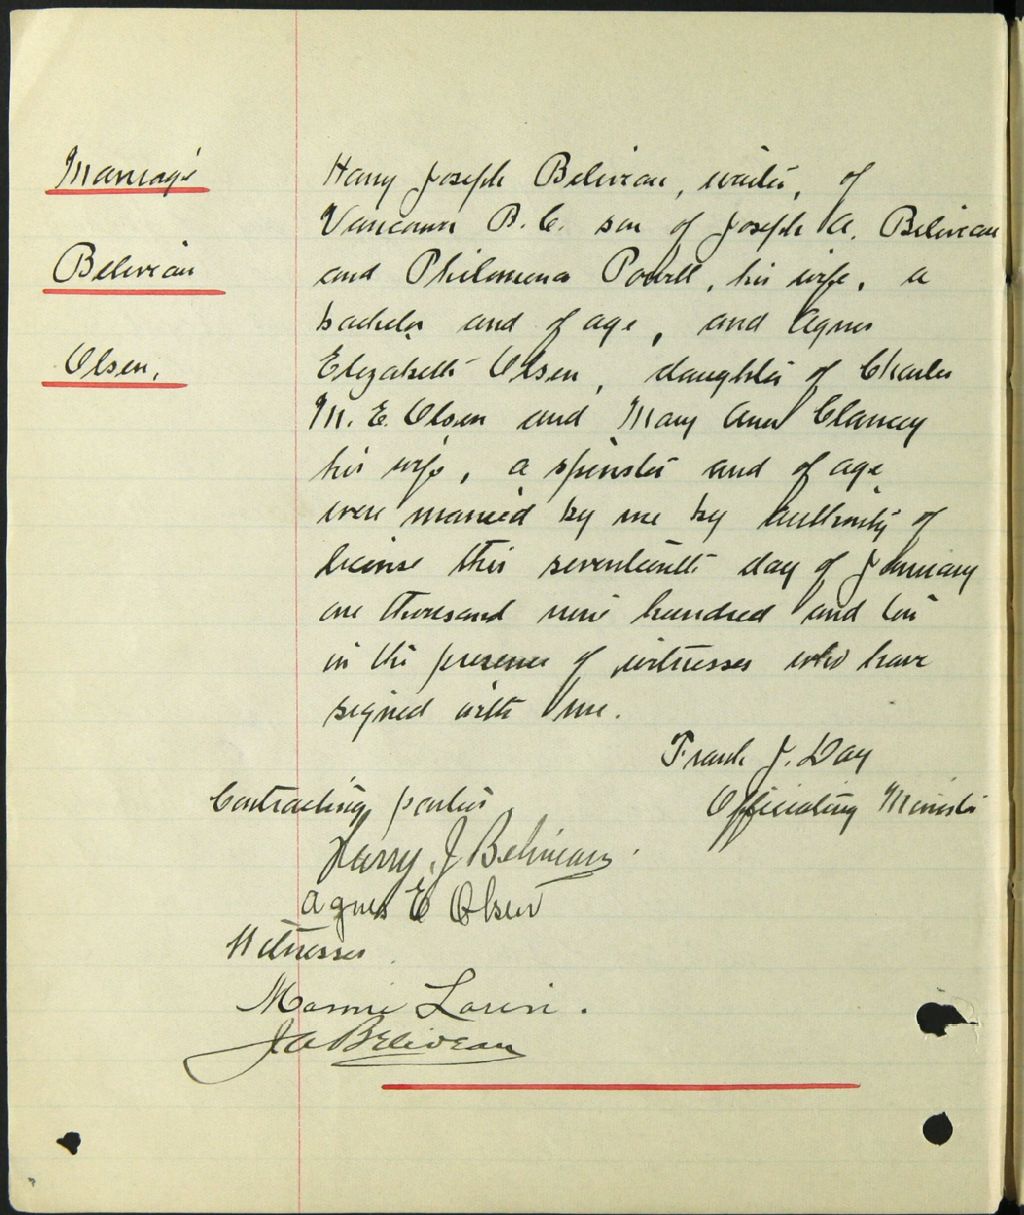 Marriage
Harry Joseph Beliveau, waiter, of
Vancouver B.C. son of Joseph A. Beliveau
Beliveau
and Philomena Powell, his wife, a
bachelor and of age, and Agnes
Olsen,
Elizabeth Olsen, daughter of Charles
M. E. Olsen and Mary Ann Clancey
his wife, a spinster and of age
were married by me by authority of
license this seventeenth day of January
one thousand nine hundred and ten
in the presence of witnesses who have
signed with me.
Frank J. Day
Contracting parties
Officiating Minister
Harry J Beliveau
Agnes E Olsen
Witnesses
Mamie Lorin.
J A Beliveau